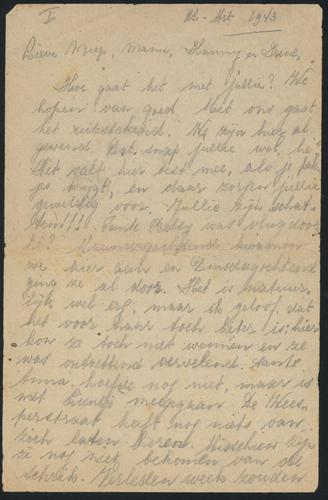 I Oct. 1943
Lieve Miep, Mann, Hanny en Greet,
Hoe gaat het met jullie? We
hopen van goed. Met ons gaat
het uitstekend. We zijn hier al
gewend. Dat snap jullie wel, hè
Het valt hier best mee, als je pak
jes krijgt, en daar zorgen jullie
geweldig voor. Jullie zijn schat-
ten!!! Tante Betsy was vlug door
hè?
we hier aan en Dinsdagochtend
ging ze al door. Het is natuur-
lijk wel erg, maar ik geloof, dat
het voor haar toch beter is; hier
kon ze toch niet wennen en ze
was ontzettend vervelend. Tante
Anna hoefde nog niet, maar is
met Lientje meegegaan. De Wees-
perstraat heeft nog niets van
zich laten horen. Misschien zijn
ze nog niet bekomen van de
schrik. Verleden week zouden